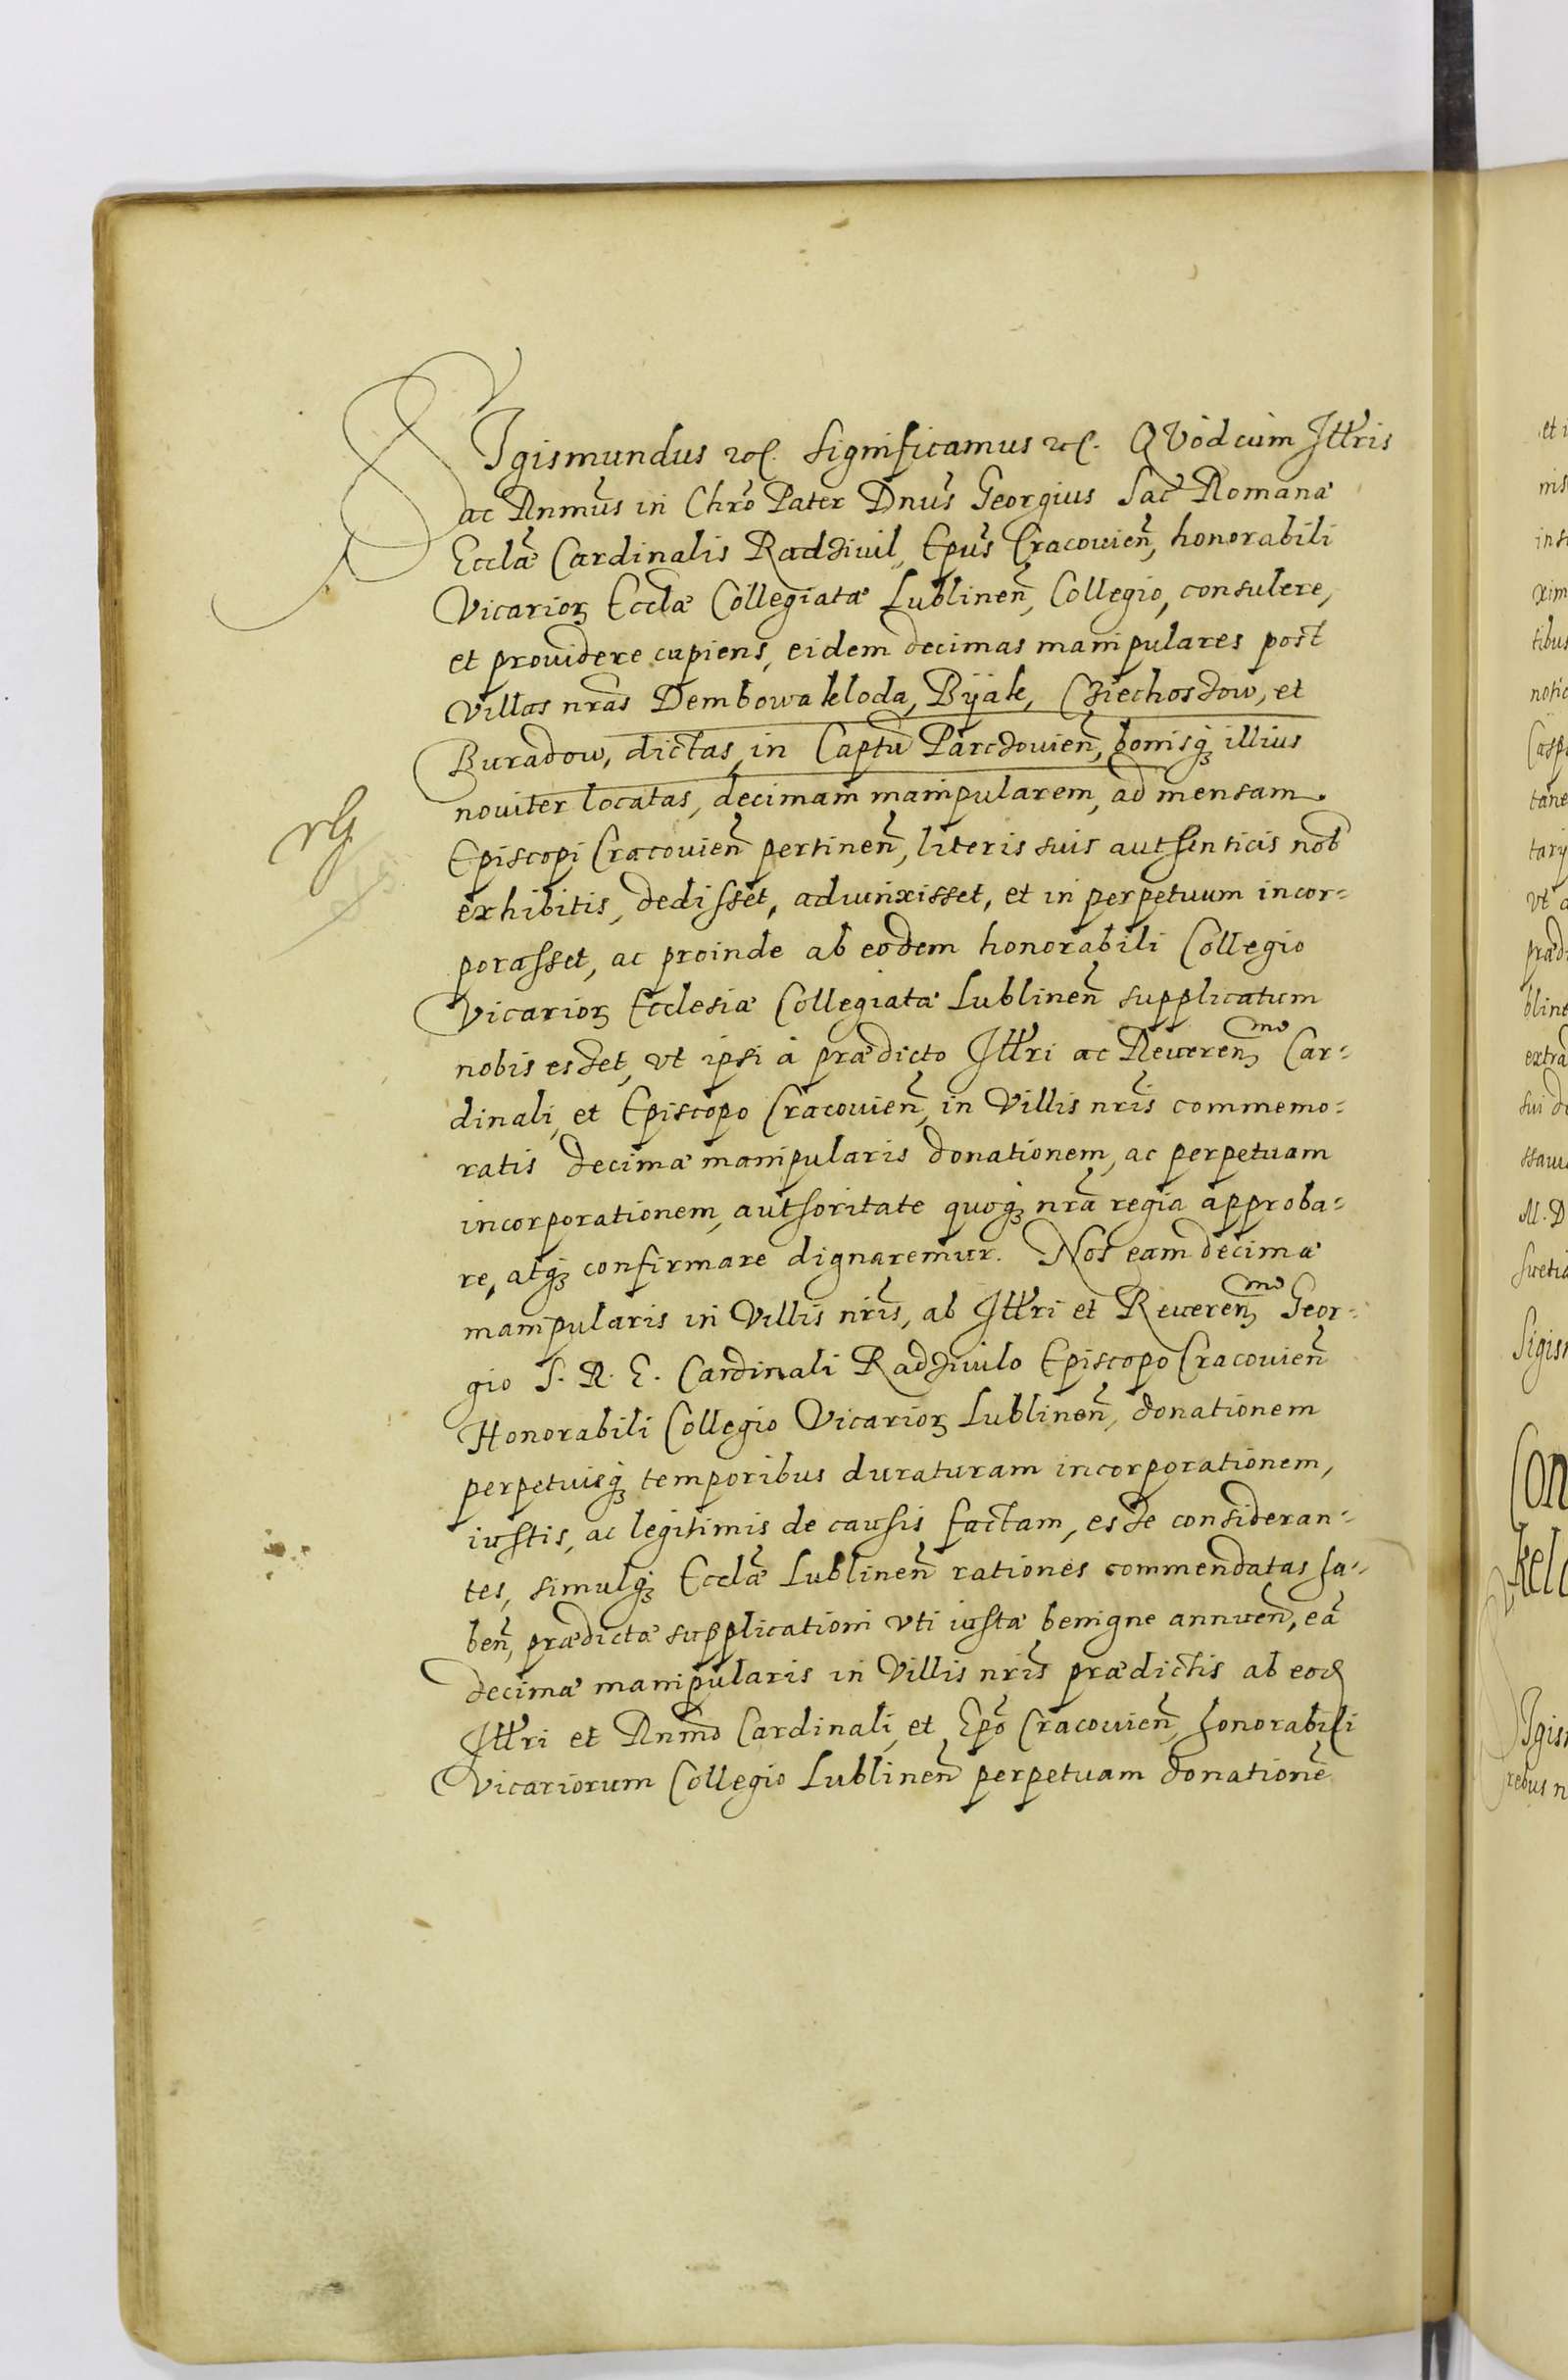 SIgismundus etc. Significamus etc. QVòd cùm Illris
ac Rnmus in Chro Pater Dnus Georgius Sac Romanæ
Ecclæ Cardinalis Radziuil, Epus Cracouien, honorabili
Vicarioꝝ Ecclæ Collegiatæ Lublinen, Collegio, consulere,
et prouidere cupiens, eidem decimas manipulares post
Villas nras Dembowa kloda, Byale, Cziechoszow, et
Buradow, dictas, in Captu Parczouien, bonisqȝ illius
nouiter locatas, decimam manipularem, ad mensam
Episcopi Cracouien pertinen, literis suis authenticis nob
exhibitis, dedisset, adiunxisset, et in perpetuum incor=
porasset, ac proinde ab eodem honorabili Collegio
Vicarioꝝ Ecclesiæ Collegiatæ Lublinen supplicatum
nobis esset, vt ipsi à prædicto Illri ac Reueren͞mo Car=
dinali, et Episcopo Cracouien, in Villis nris commemo=
ratis decimæ manipularis donationem, ac perpetuam
incorporationem, authoritate quoqȝ nra regia approba=
re, atqȝ confirmare dignaremur. Nos eam decimæ
manipularis in Villis nris, ab Illri et Reueren͞mo Geor=
gio S. R. E. Cardinali Radziuilo Episcopo Cracouien
Honorabili Collegio Vicarioꝝ Lublinen, donationem
perpetuisqȝ temporibus duraturam incorporationem,
iustis, ac legitimis de causis factam, esse consideran=
tes, simulqȝ Ecclæ Lublinen rationes commendatas ha=
ben, prædictæ supplicationi vti iustæ benigne annuen, eã
decimæ manipularis in Villis nris prædictis ab eod
Illri et Rnmo Cardinali, et Epo Cracouien, honorabili
Vicariorum Collegio Lublinen perpetuam donationẽ